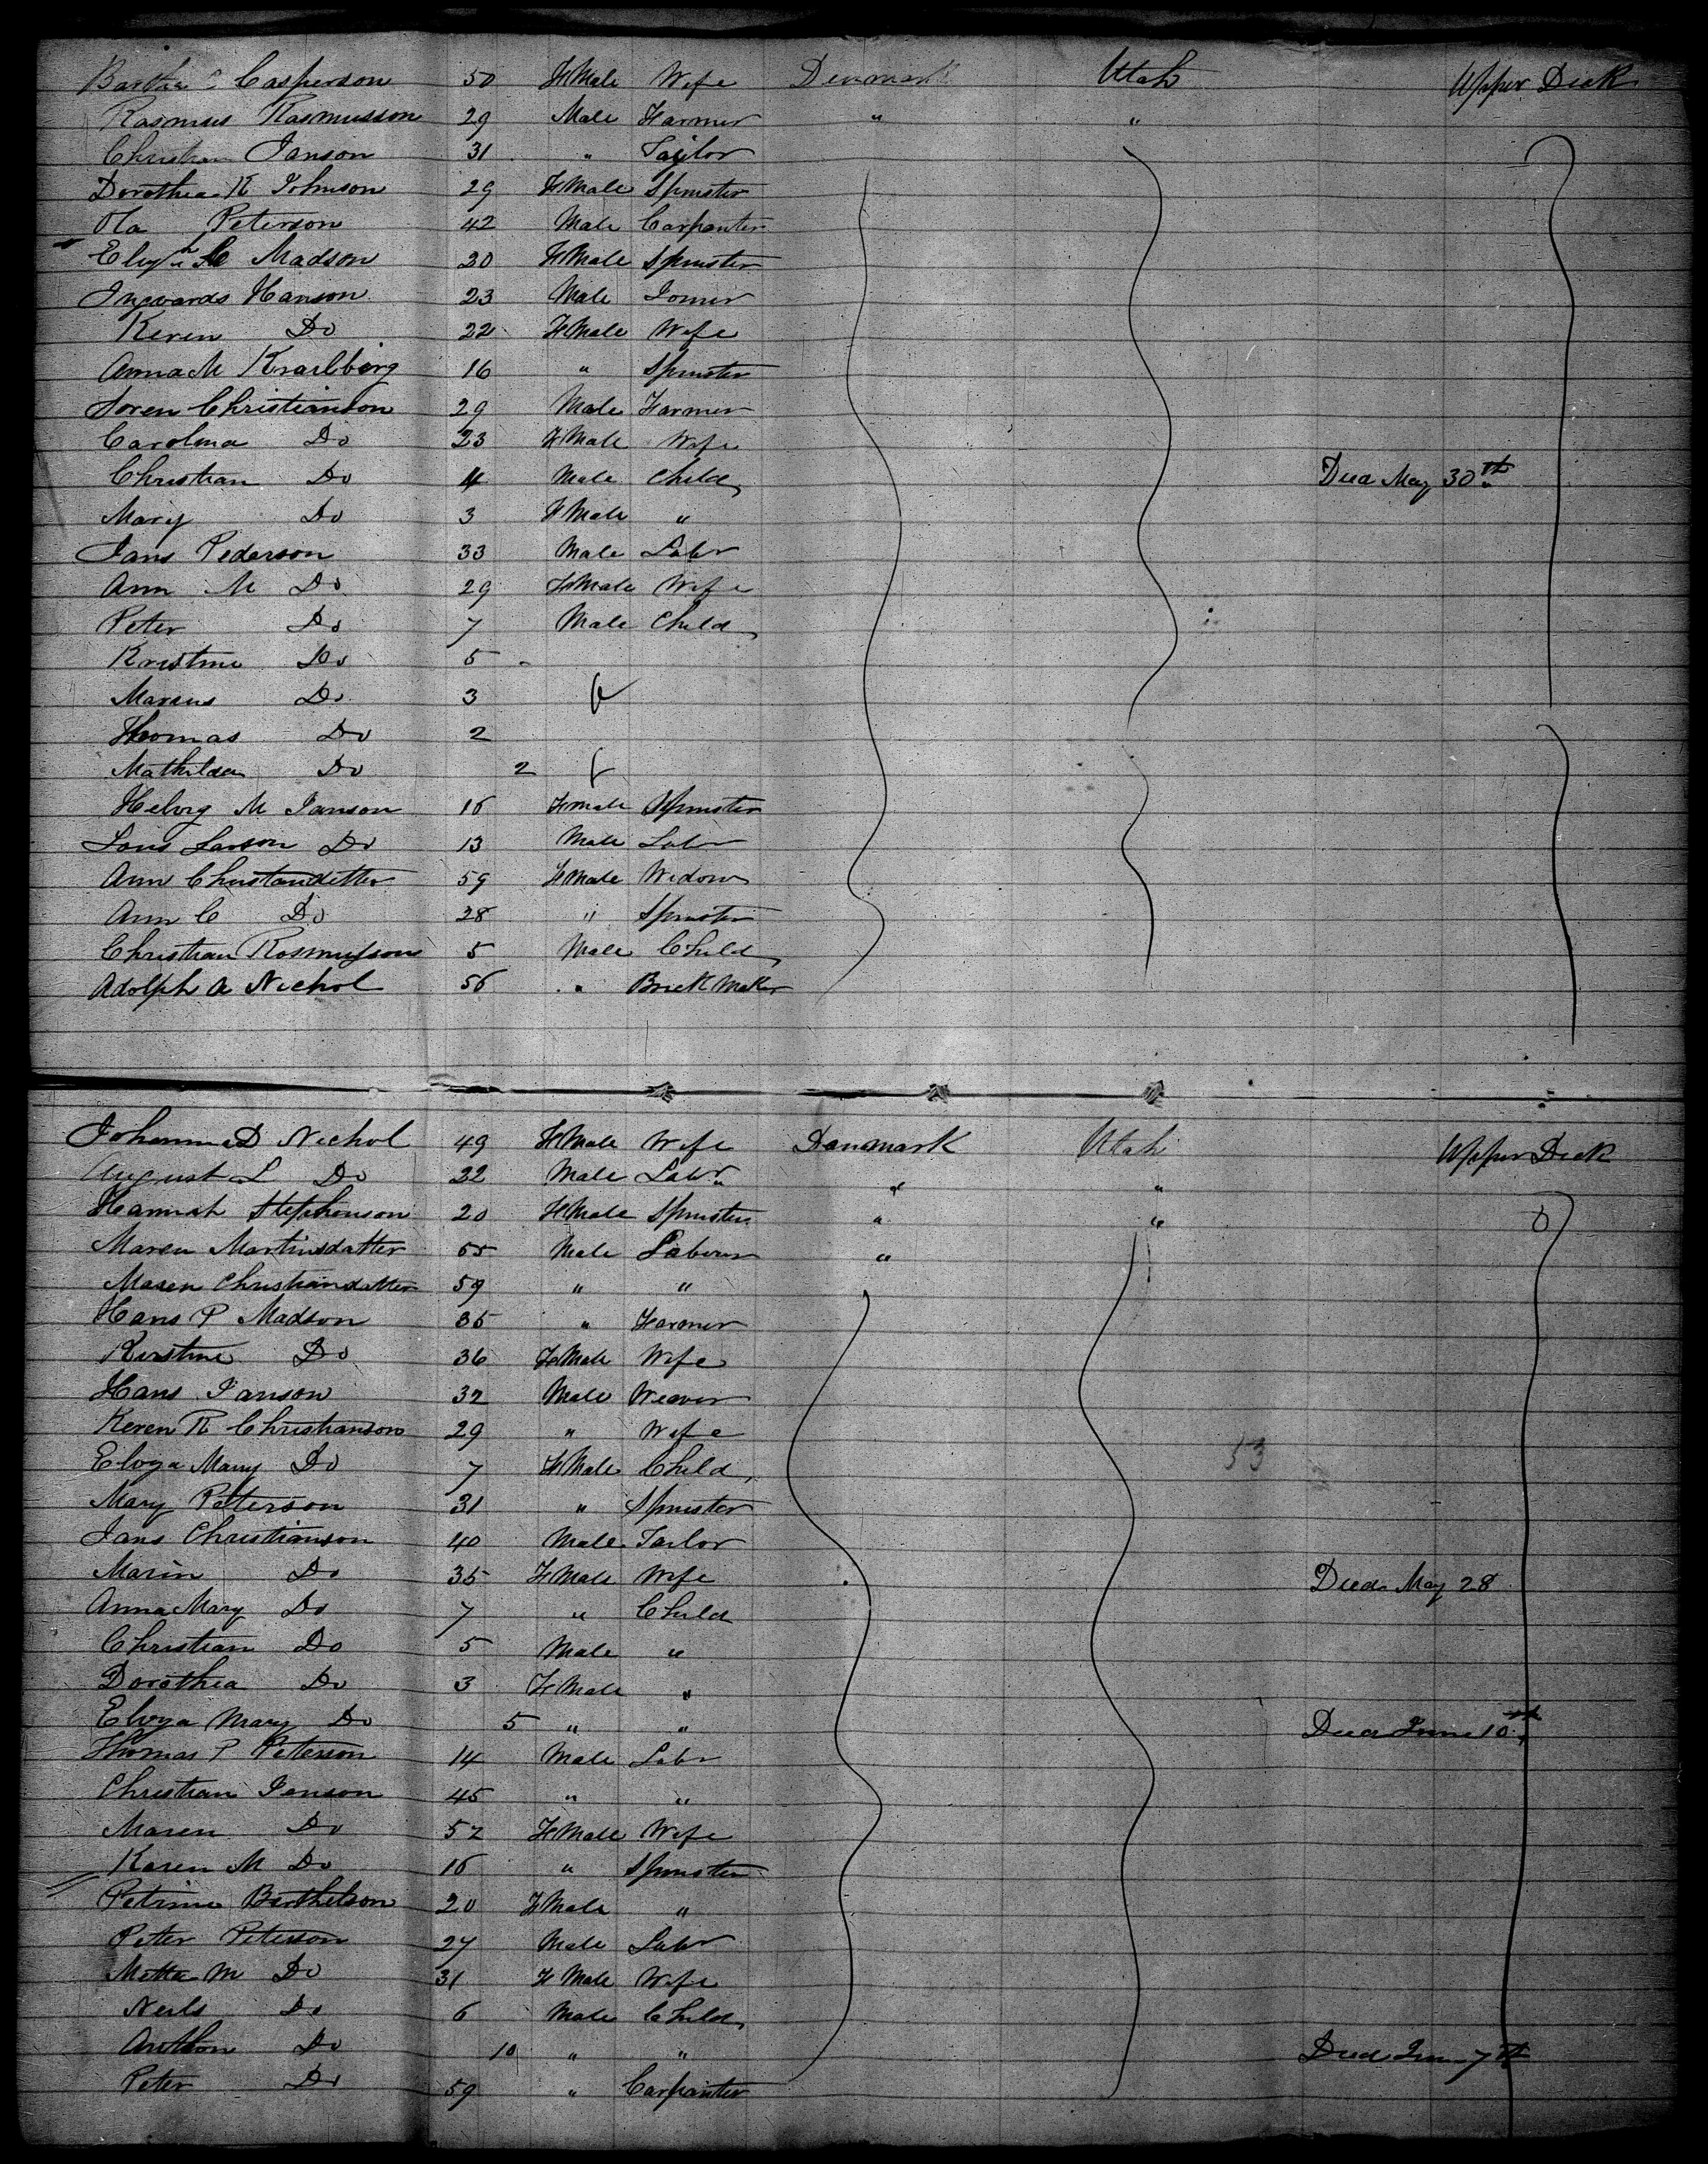 Barthe C Casperson 50 FMale Wife Denmark Utah Upper Deck
Rasmus Rasmusson 29 Male Farmer " "
Christian Janson 31 " Tailor
Dorothea K Johnson 29 FMale Spinster
Ola Peterson 42 Male Carpenter
Madson 20 FMale Spinster
Ingvards Hanson 23 Male Joiner
Keren Do 22 FMale Wife
Anna M 16 " Spinster
Soren Christianson 29 Male Farmer
Carolina Do 23 FMale Wife
Christian Do 4 Male Child Died May 30th
Mary Do 3 FMale "
Jans Pederson 33 Male Labr
Ann M Do 29 FMale Wife
Peter Do 7 Male Child
Kristine Do 5
Do 3 f
Thomas Do 2
Mathilda Do 2 f
Helvig M Janson 16 Female Spinster
Louis Larson Do 13 Male Labr
Ann Christandatter 59 FMale Widow
Ann C Do 28 " Spinster
Christian Rosmusson 5 Male Child
Adolph A Nichol 56 " Brick Maker
Johanna D Nichol 49 FMale Wife Danmark Utah Upper Deck
August L Do 22 Male Labr " "
Hannah Stephenson 20 FMale Spinster " "
Maren Martinsdatter 55 Male Labourer "
Maren Christiandatter 59 " "
Hans P Madson 35 " Farmer
Kirstine Do 36 FMale Wife
Hans Janson 32 Male Weaver
Keren K Christianson 29 " Wife
53
Elvya Mary Do 7 FMale Child
Mary Peterson 31 " Spinster
Jans Christianson 40 Male Tailor
Marin Do 35 FMale Wife Died May 28
Anna Mary Do 7 " Child
Christian Do 5 Male "
Dorothea Do 3 FMale "
Elvya Mary Do 5 " " Died June 10th
Thomas P Peterson 14 Male Labr
Christian Jenson 45 " "
Maren Do 52 FMale Wife
Karen M Do 16 " Spinster
Petrine Berthelson 20 FMale "
Peter Peterson 27 Male Labr
Metta M Do 31 FMale Wife
Neils Do 6 Male Child
Anthon Do 10 " " Died June 7th
Peter Do 59 " Carpenter